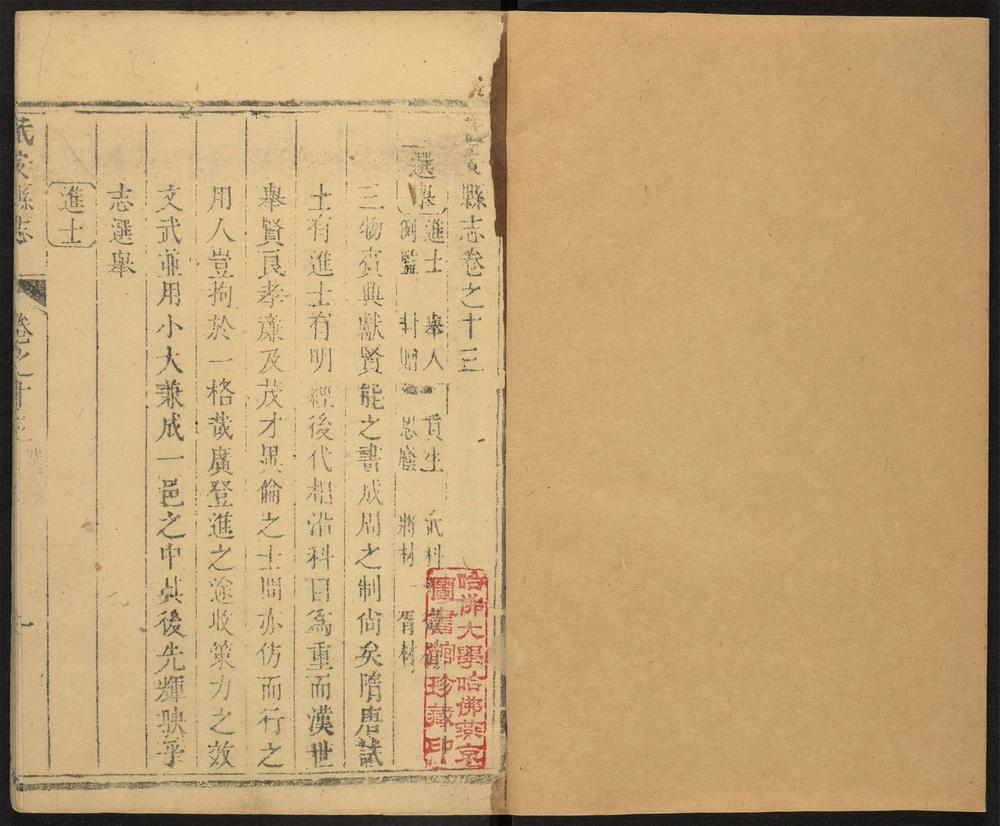 縣志卷之十三
選舉
進士 舉人 貢生 武科
例監 封贈 恩廕 將材 胥材
三物賓興獻賢能之書成周之制尚矣隋唐試
士有進士有明經後代相沿科目為重而漢世
舉賢良孝廉及茂才異倫之士間亦仿而行之
用人豈拘於一格哉廣登進之途收策力之效
文武並用小大兼成一邑之中其後先輝映乎
志選舉
進士
縣志
卷之十三
一
哈佛大學哈佛燕京
圖書館珍藏印